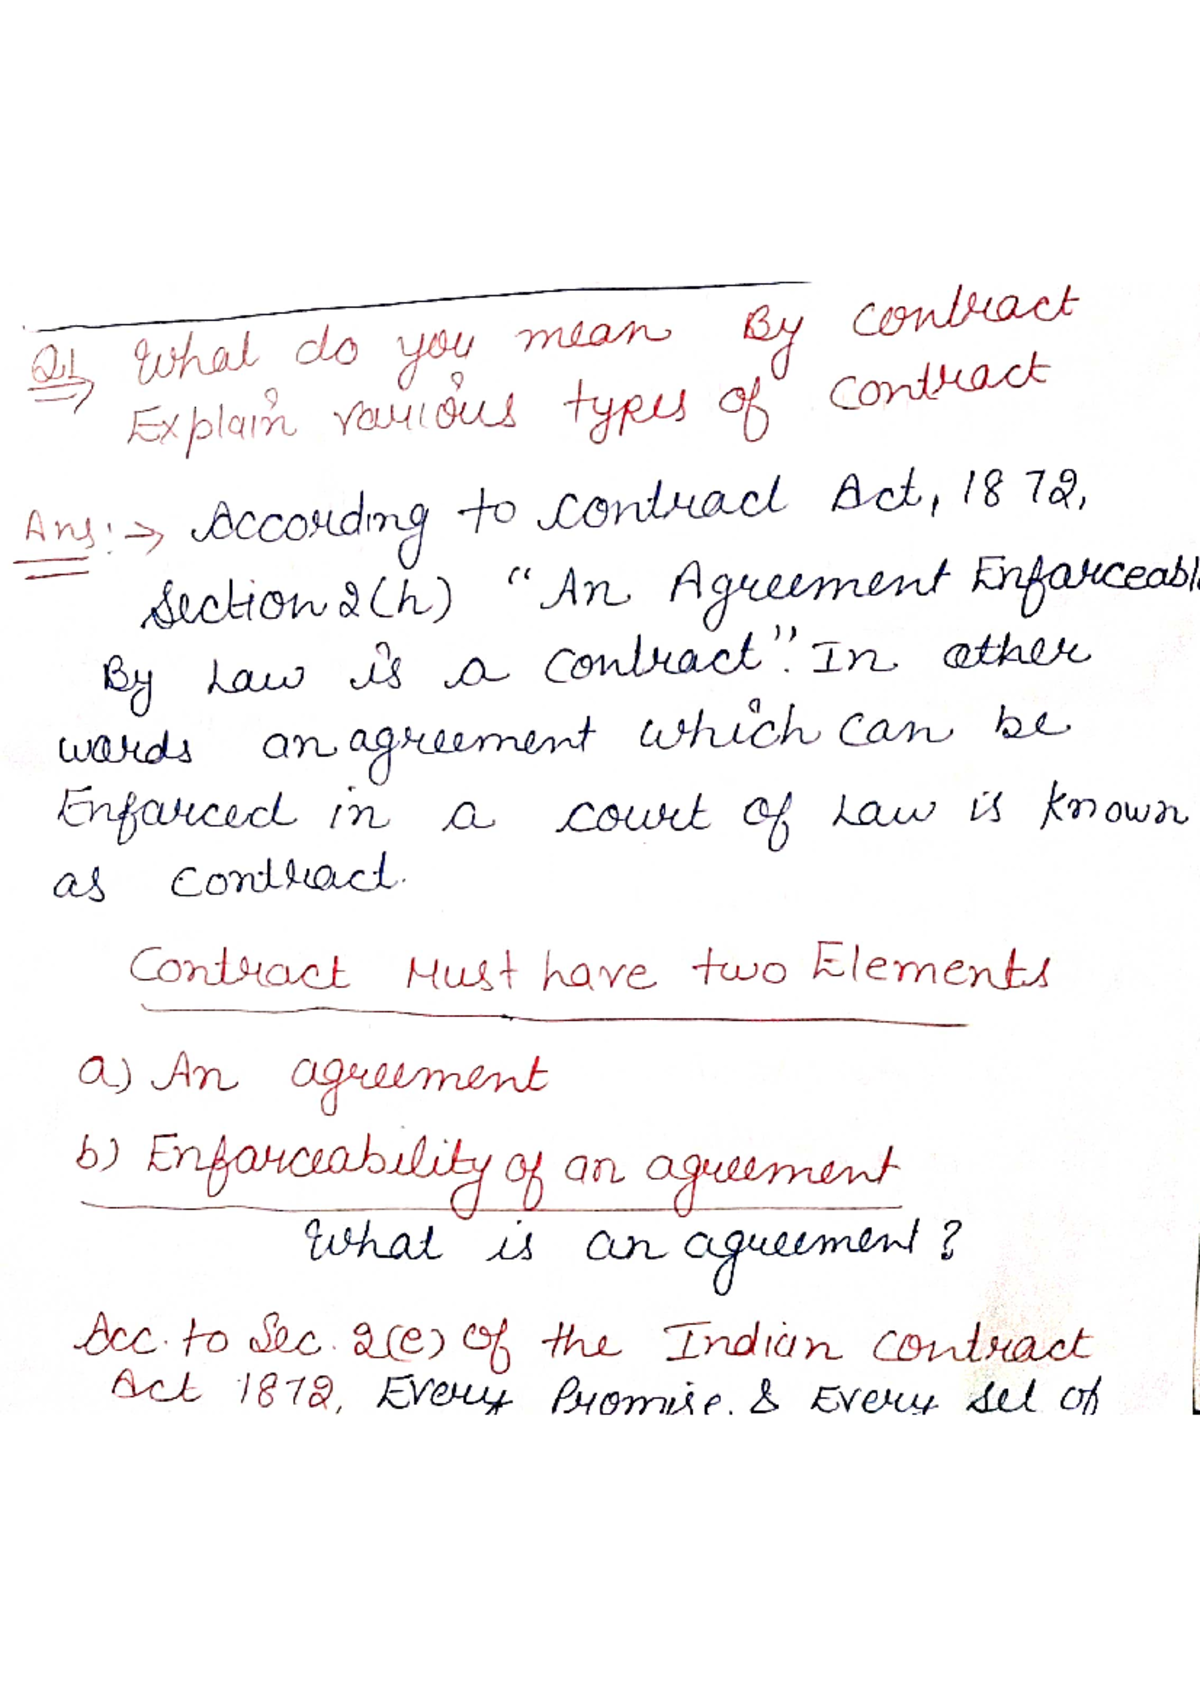 Q.1 What do you mean By contract
Explain various types of contract
Ans :→ According to contract Act, 1872,
Section 2(h) "An Agreement Enfarceabl
By Law is a contract". In other
wards an agreement which can be
Enfarced in a court of Law is known
as contract.
Contract Must have two Elements
a) An agreement
b) Enfarceability of an agreement
What is an agreement?
Acc. to Sec. 2(e) of the Indian contract
Act 1872, Every Promise. & Every set of